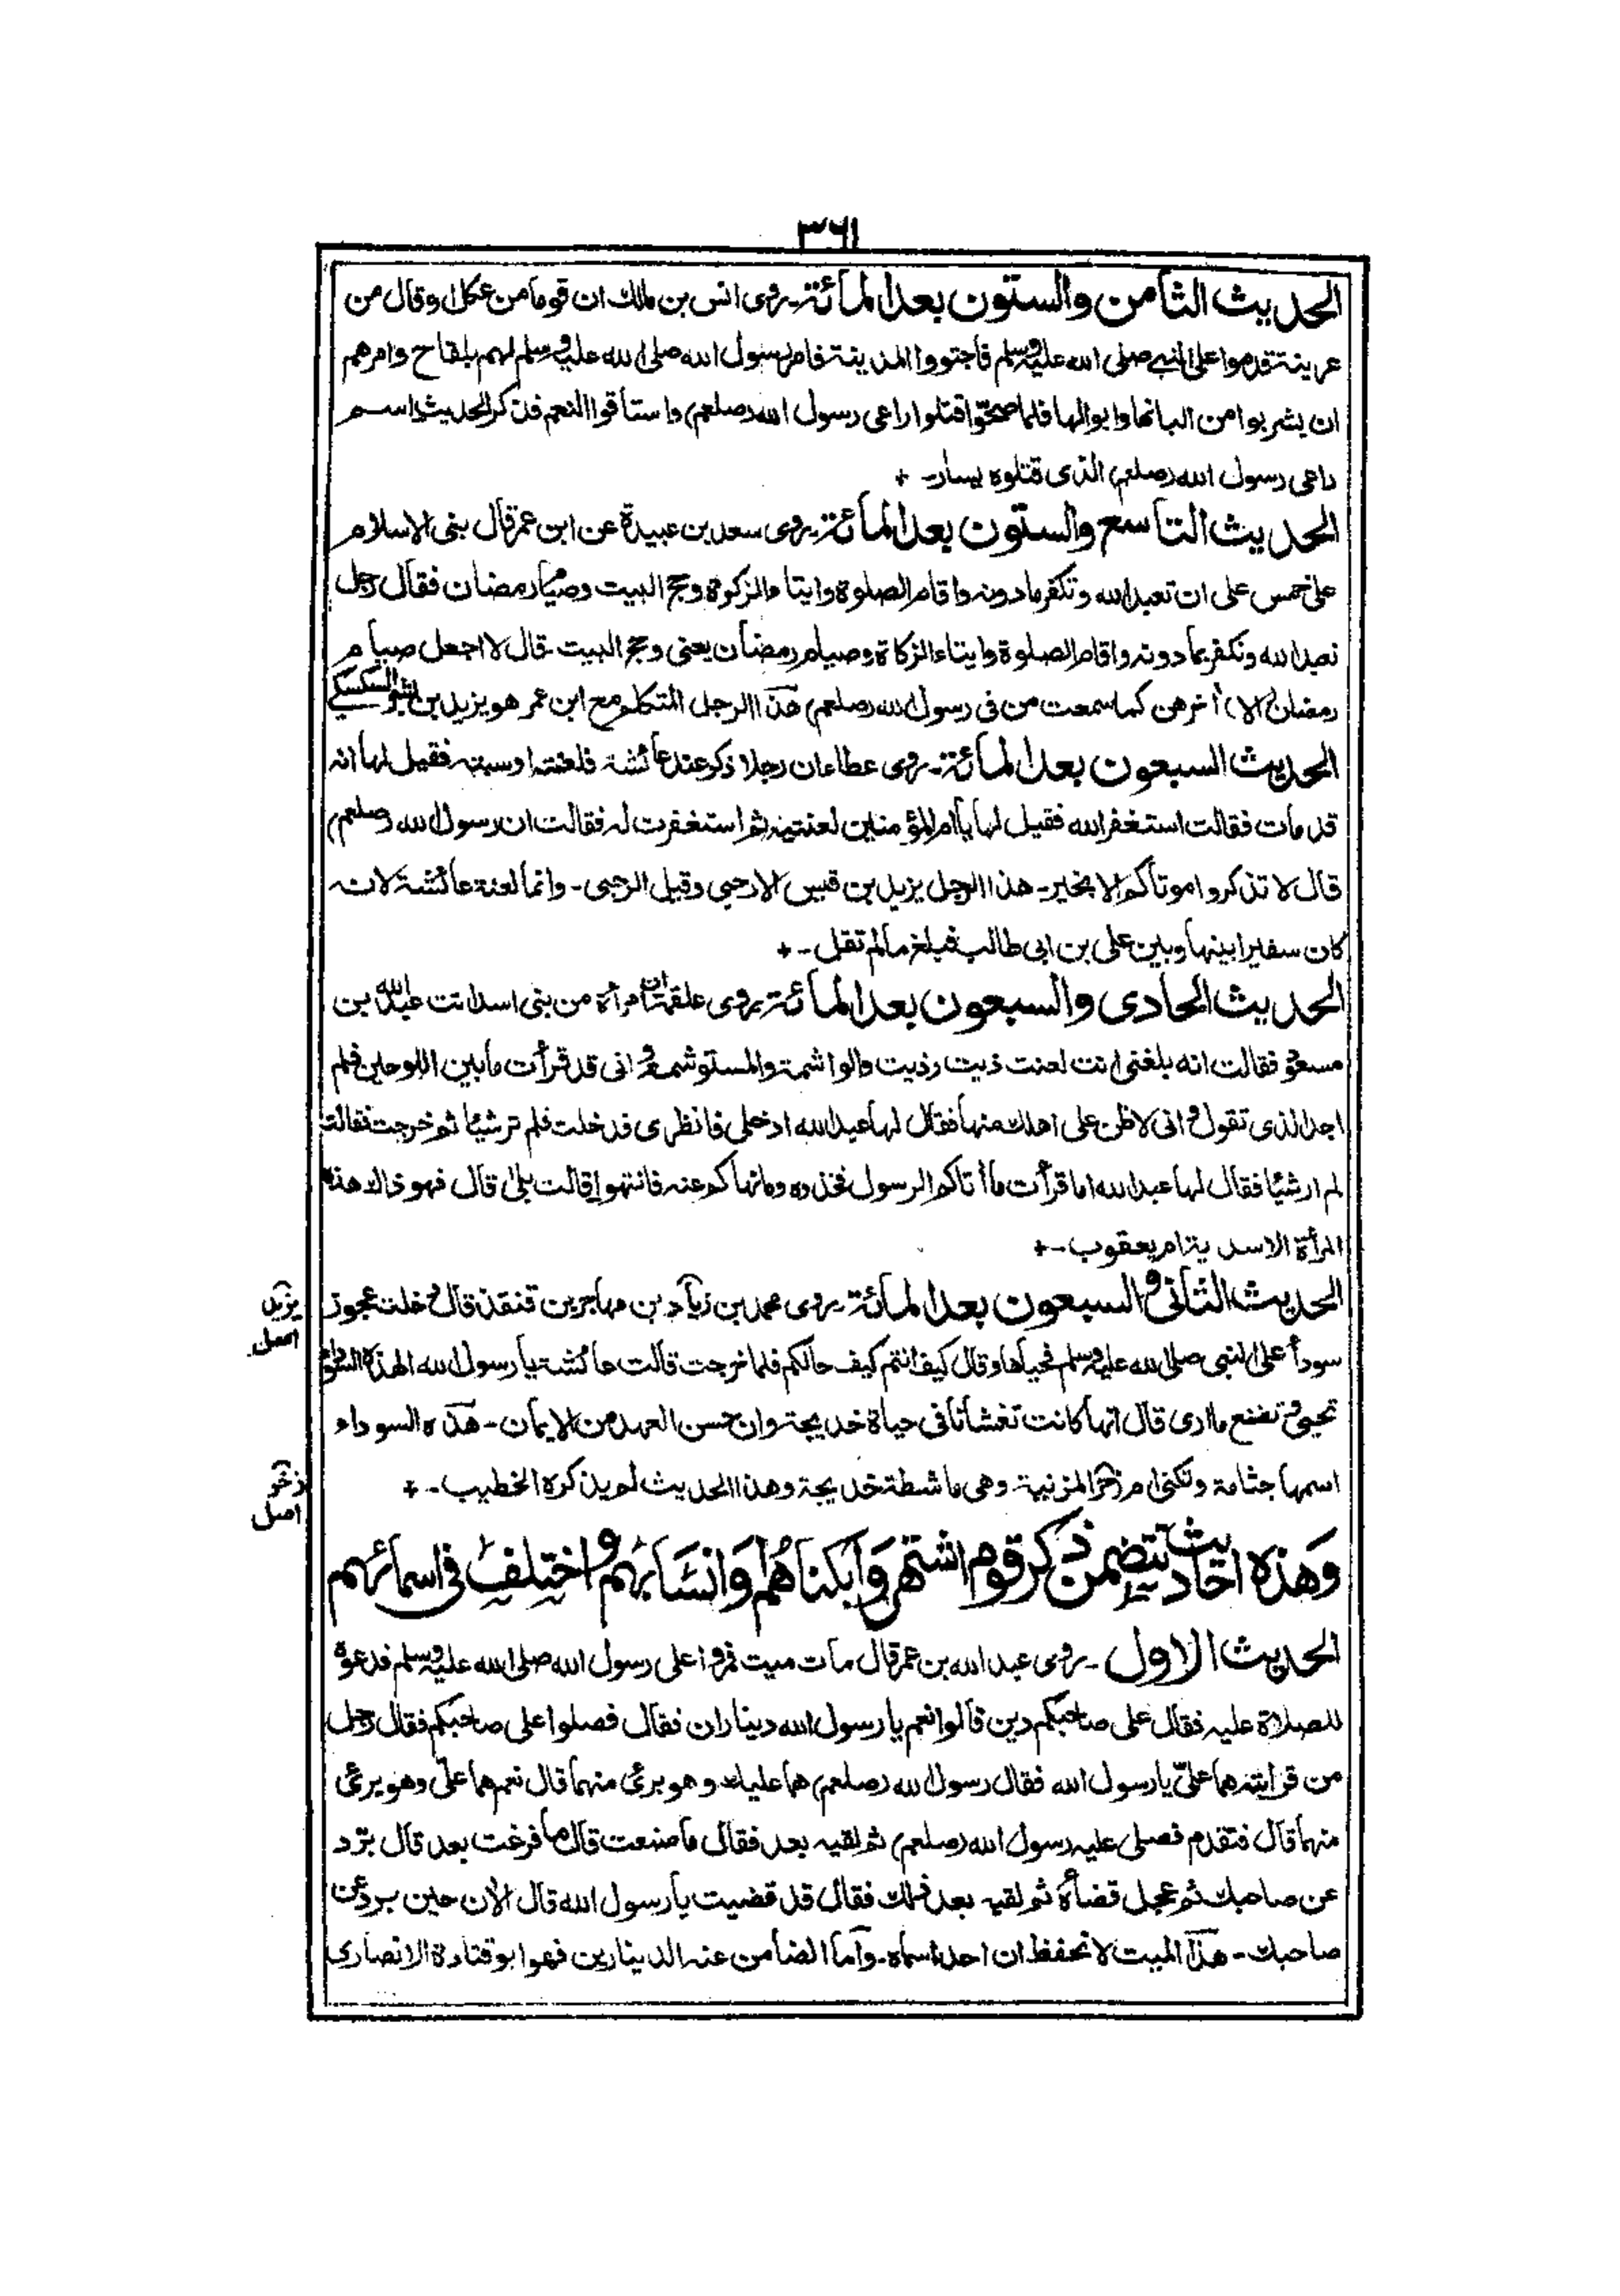 ٣٦١
الحديث الثامن والستون بعد المائة۔ روى انس بن مالك ان قوما من عكل او قال من
عرينة قدموا على النبي صلى الله عليه وسلم فاجتووا المدينة فامر رسول الله صلى الله عليه وسلم لهم بلقاح وامرهم
ان يشربوا من البانها وابوالها فلما صحوا قتلوا راعى رسول الله (صلعم) واستاقوا النعم فذكر الحديث اسم
راعى رسول الله (صلعم) الذى قتلوه يسار۔ +
الحديث التاسع والستون بعد المائة۔ روى سعد بن عبيدة عن ابن عمر قال بنى الاسلام
على خمس على ان تعبد الله وتكفر مادونه واقام الصلوة وايتاء الزكوة وحج البيت وصيام رمضان فقال رجل
نعبد الله ونكفر بما دونه واقام الصلوة وايتاء الزكاة وصيام رمضان يعنى وحج البيت۔ قال لا اجعل صيام
رمضان (الا) أخرهن كما سمعت من فى رسول الله (صلعم) هذا الرجل المتكلم مع ابن عمر هو يزيد بن بشر السكسكي
الحديث السبعون بعد المائة۔ روى عطاء ان رجلا ذكر عند عائشة فلعنته او سبته فقيل لها انه
قد مات فقالت استغفر الله فقيل لها يا ام المؤمنين لعنتيه ثم استغفرت له فقالت ان رسول الله (صلعم)
قال لا تذكروا موتاكم الا بخير۔ هذا الرجل يزيد بن قيس الارحبي وقيل الرحبى۔ وانما لعنة عائشة لانه
كان سفيرا بينها وبين على بن ابى طالب فبلغ مالم تقل۔ +
الحديث الحادى والسبعون بعد المائة۔ روى علقمة ان امرأة من بنى اسد اتت عبد الله بن
مسعود فقالت انه بلغنى انت لعنت ذيت وذيت والواشمة والمستوشمة وانى قد قرأت مابين اللوحين فلم
اجد الذى تقول وانى لاظن على اهلك منها فقال لها عبد الله ادخلى فانظرى فدخلت فلم تر شيئا ثم خرجت فقالت
لم ار شيئا فقال لها عبد الله اما قرأت ما أتاكم الرسول فخذوه ومانهاكم عنه فانتهوا قالت بلى قال فهو ذاك هذه
المرأة الاسدية ام يعقوب۔ +
الحديث الثانى والسبعون بعد المائة۔ روى محمد بن زياد بن مهاجر بن قنفذ قال دخلت عجوز
يزيد
اصل
سودأ على النبى صلى الله عليه وسلم فحياها وقال كيف انتم كيف حالكم فلما خرجت قالت عائشة يا رسول الله الهذه السوداء
تحيى وتصنع ما ارى قال انها كانت تغشانا فى حياة خديجة وان حسن العهد من الايمان۔ هذه السوداء
اسمها جثامة وتكنى ام زفر المزنية وهى ماشطة خديجة وهذا الحديث لم يذكره الخطيب۔ +
اصل
وَهذه احاديث تتضمن ذكر قوم اشتهروَا بكناهُم وَانسَابهم واختلف فى اسمائهم
الحديث الاول۔ روى عبد الله بن عمر قال مات ميت فمروا على رسول الله صلى الله عليه وسلم فدعوه
للصلاة عليه فقال على صاحبكم دين قالوا نعم يا رسول الله ديناران فقال فصلوا على صاحبكم فقال رجل
من قرابته هما علىّ يا رسول الله فقال رسول الله (صلعم) هما عليك وهو برئ منهما قال نعم هما علىّ وهو برئ
منهما قال فتقدم فصلى عليه رسول الله (صلعم) ثم لقيه بعد فقال ما صنعت قال ما فرغت بعد قال برّد
عن صاحبك ثم عجل قضأه ثم لقيه بعد ذلك فقال قد قضيت يا رسول الله قال الأن حين برد عن
صاحبك۔ هذا الميت لا نحفظ ان احدا سماه۔ وأما الضامن عنه الدينارين فهو ابو قتادة الانصارى